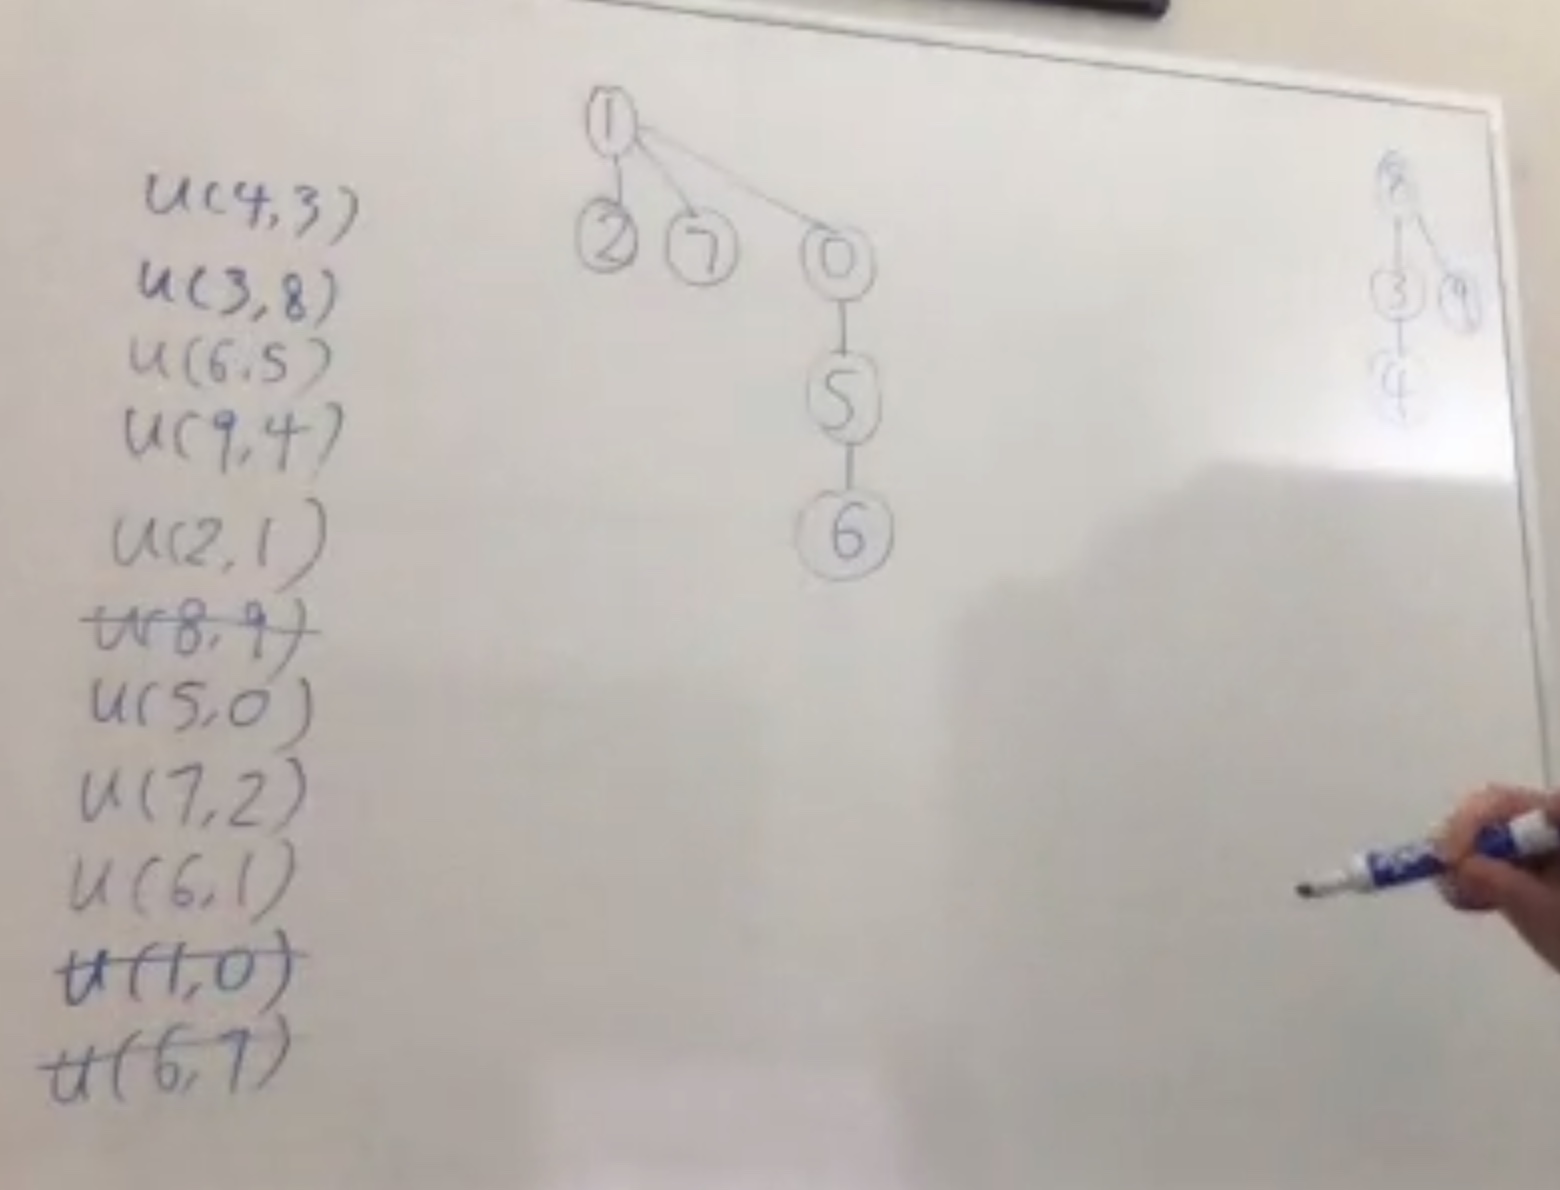 u(4,3)
u(3,8)
u(6,5)
u(9,4)
u(2,1)
u(8,9)
u(5,0)
u(7,2)
u(6,1)
u(1,0)
u(6,7)
1
2 7 0
5
6
8
3 9
4